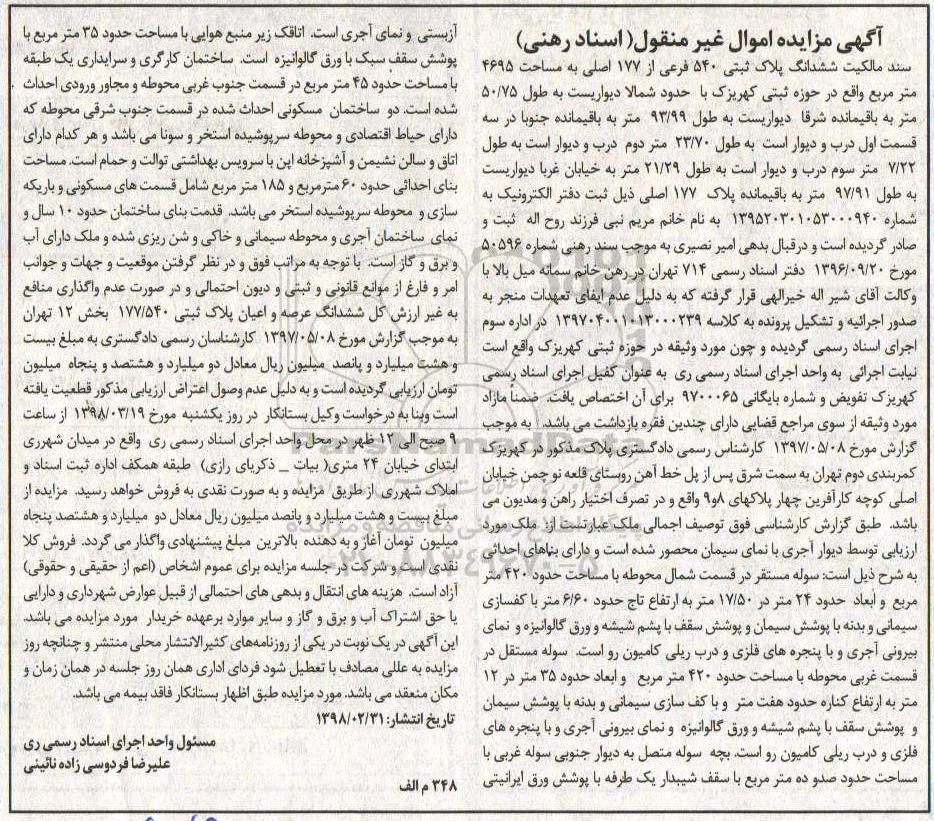 آگهی مزایده اموال غیر منقول( اسناد رهنی)
سند مالکیت ششدانگ پلاک ثبتی ۵۴۰ فرعی از ۱۷۷ اصلی به مساحت ۴۶۹۵
متر مربع واقع در حوزه ثبتی کهریزک با حدود شمالا دیواریست به طول ۵۰/۷۵
متر به باقیمانده شرقا دیواریست به طول ۹۳/۹۹ متر به باقیمانده جنوبا در سه
قسمت اول درب و دیوار است به طول ۲۳/۷۰ متر دوم درب و دیوار است به طول
۷/۲۲ متر سوم درب و دیوار است به طول ۲۱/۲۹ متر به خیابان غربا دیواریست
به طول ۹۷/۹۱ متر به باقیمانده پلاک ۱۷۷ اصلی ذیل ثبت دفتر الکترونیک به
شماره ۱۳۹۵۲۰۳۰۱۰۵۳۰۰۰۹۴۰ به نام خانم مریم نبی فرزند روح اله ثبت و
صادر گردیده است و درقبال بدهی امیر نصیری به موجب سند رهنی شماره ۵۰۵۹۶
مورخ ۱۳۹۶/۰۹/۲۰ دفتر اسناد رسمی ۷۱۴ تهران در رهن خانم سمانه میل بالا با
وکالت آقای شیر اله خیرالهی قرار گرفته که به دلیل عدم ایفای تعهدات منجر به
صدور اجرائیه و تشکیل پرونده به کلاسه ۱۳۹۷۰۴۰۰۱۰۱۳۰۰۰۲۳۹ در اداره سوم
اجرای اسناد رسمی گردیده و چون مورد وثیقه در حوزه ثبتی کهریزک واقع است
نیابت اجرائی به واحد اجرای اسناد رسمی ری به عنوان کفیل اجرای اسناد رسمی
کهریزک تفویض و شماره بایگانی ۹۷۰۰۰۶۵ برای آن اختصاص یافت. ضمناً مازاد
مورد وثیقه از سوی مراجع قضایی دارای چندین فقره بازداشت می باشد. به موجب
گزارش مورخ ۱۳۹۷/۰۵/۰۸ کارشناس رسمی دادگستری پلاک مذکور در کهریزک
کمربندی دوم تهران به سمت شرق پس از پل خط آهن روستای قلعه نو چمن خیابان
اصلی کوچه کارآفرین چهار پلاکهای ۸و۹ واقع و در تصرف اختیار راهن و مدیون می
باشد. طبق گزارش کارشناسی فوق توصیف اجمالی ملک عبارتست از: ملک مورد
ارزیابی توسط دیوار آجری با نمای سیمان محصور شده است و دارای بناهای احداثی
به شرح ذیل است: سوله مستقر در قسمت شمال محوطه با مساحت حدود ۴۲۰ متر
مربع و ابعاد حدود ۲۴ متر در ۱۷/۵۰ متر به ارتفاع تاج حدود ۶/۶۰ متر با کفسازی
سیمانی و بدنه با پوشش سیمان و پوشش سقف با پشم شیشه و ورق گالوانیزه و نمای
بیرونی آجری و با پنجره های فلزی و درب ریلی کامیون رو است. سوله مستقل در
قسمت غربی محوطه با مساحت حدود ۴۲۰ متر مربع و ابعاد حدود ۳۵ متر در ۱۲
متر به ارتفاع کناره حدود هفت متر و با کف سازی سیمانی و بدنه با پوشش سیمان
و پوشش سقف با پشم شیشه و ورق گالوانیزه و نمای بیرونی آجری و با پنجره های
فلزی و درب ریلی کامیون رو است. بچه سوله متصل به دیوار جنوبی سوله غربی با
مساحت حدود صدو ده متر مربع با سقف شیبدار یک طرفه با پوشش ورق ایرانیتی
آزبستی و نمای آجری است. اتاقک زیر منبع هوایی با مساحت حدود ۳۵ متر مربع با
پوشش سقف سبک با ورق گالوانیزه است. ساختمان کارگری و سرایداری یک طبقه
با مساحت حدود ۴۵ متر مربع در قسمت جنوب غربی محوطه و مجاور ورودی احداث
شده است. دو ساختمان مسکونی احداث شده در قسمت جنوب شرقی محوطه که
دارای حیاط اقتصادی و محوطه سرپوشیده استخر و سونا می باشد و هر کدام دارای
اتاق و سالن نشیمن و آشپزخانه اپن با سرویس بهداشتی توالت و حمام است. مساحت
بنای احداثی حدود ۶۰ مترمربع و ۱۸۵ متر مربع شامل قسمت های مسکونی و باریکه
سازی و محوطه سرپوشیده استخر می باشد. قدمت بنای ساختمان حدود ۱۰ سال و
نمای ساختمان آجری و محوطه سیمانی و خاکی و شن ریزی شده و ملک دارای آب
و برق و گاز است. با توجه به مراتب فوق و در نظر گرفتن موقعیت و جهات و جوانب
امر و فارغ از موانع قانونی و ثبتی و دیون احتمالی و در صورت عدم واگذاری منافع
به غیر ارزش کل ششدانگ عرصه و اعیان پلاک ثبتی ۱۷۷/۵۴۰ بخش ۱۲ تهران
به موجب گزارش مورخ ۱۳۹۷/۰۵/۰۸ کارشناسان رسمی دادگستری به مبلغ بیست
و هشت میلیارد و پانصد میلیون ریال معادل دو میلیارد و هشتصد و پنجاه میلیون
تومان ارزیابی گردیده است و به دلیل عدم وصول اعتراض ارزیابی مذکور قطعیت یافته
است وبنا به درخواست وکیل بستانکار در روز یکشنبه مورخ ۱۳۹۸/۰۳/۱۹ از ساعت
۹ صبح الی ۱۲ ظهر در محل واحد اجرای اسناد رسمی ری واقع در میدان شهرری
ابتدای خیابان ۲۴ متری( بیات _ ذکریای رازی) طبقه همکف اداره ثبت اسناد و
املاک شهرری از طریق مزایده و به صورت نقدی به فروش خواهد رسید. مزایده از
مبلغ بیست و هشت میلیارد و پانصد میلیون ریال معادل دو میلیارد و هشتصد پنجاه
میلیون تومان آغاز و به دهنده بالاترین مبلغ پیشنهادی واگذار می گردد. فروش کلا
نقدی است و شرکت در جلسه مزایده برای عموم اشخاص (اعم از حقیقی و حقوقی)
آزاد است. هزینه های انتقال و بدهی های احتمالی از قبیل عوارض شهرداری و دارایی
یا حق اشتراک آب و برق و گاز و سایر موارد برعهده خریدار مورد مزایده می باشد.
این آگهی در یک نوبت در یکی از روزنامه‌های کثیرالانتشار محلی منتشر و چنانچه روز
مزایده به عللی مصادف با تعطیل شود فردای اداری همان روز جلسه در همان زمان و
مکان منعقد می باشد. مورد مزایده طبق اظهار بستانکار فاقد بیمه می باشد.
تاریخ انتشار: ۱۳۹۸/۰۲/۳۱
مسئول واحد اجرای اسناد رسمی ری
علیرضا فردوسی زاده نائینی
۳۴۸ م الف
ParsNamadData